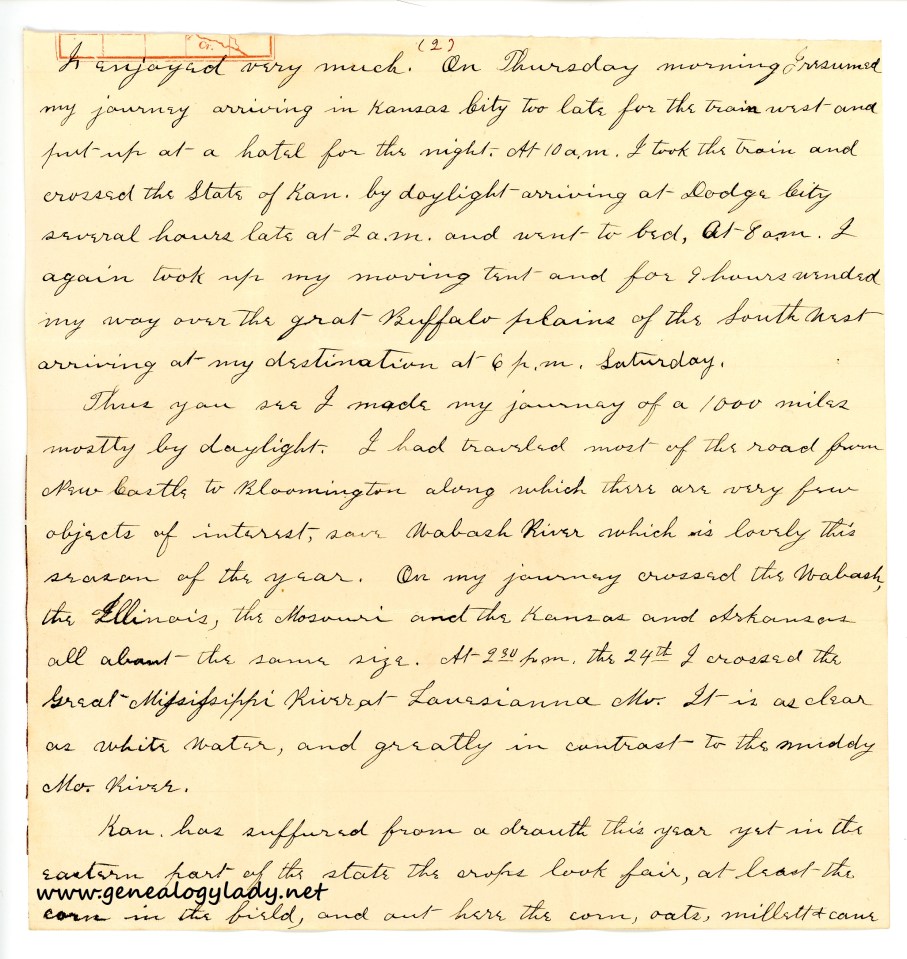 Cr.
(2)
I enjoyed very much. On Thursday morning I resumed
my journey arriving in Kansas City too late for the train west and
put up at a hotel for the night. At 10 a.m. I took the train and
crossed the State of Kan. by daylight arriving at Dodge City
several hours late at 2 a.m. and went to bed, At 8 a.m. I
again took up my moving tent and for 9 hours wended
my way over the grat Buffalo plains of the South West
arriving at my destination at 6 p.m. Saturday.
Thus you see I made my journey of a 1000 miles
mostly by daylight. I had traveled most of the road from
New Castle to Bloomington along which there are very few
objects of interest, save Wabash River which is lovely this
season of the year. On my journey crossed the Wabash,
the Illinois, the Mosouri and the Kansas and Arkansas
all about the same size. At 2 30 p.m. the 24th I crossed the
Great Mississippi River, at Louesianna Mo. It is as clear
as white water, and greatly in contrast to the muddy
Mo. River.
Kan. has suffured from a drouth this year yet in the
eastern part of the state the crops look fair, at least the
www.genealogylady.net
corn in the field, and out here the corn, oats, millett & cane